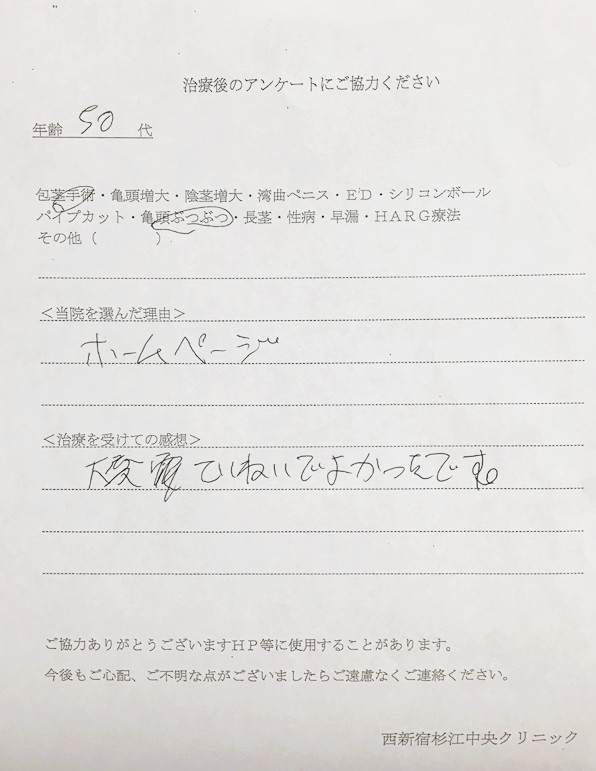 治療後のアンケートにご協力ください
年齢 50 代
包茎手術・亀頭増大・陰茎増大・湾曲ペニス・ED・シリコンボール
パイプカット・亀頭ぶつぶつ・長茎・性病・早漏・HARG療法
その他（　　　）
＜当院を選んだ理由＞
ホームページ
＜治療を受けての感想＞
大変 ていねいでよかったです。
ご協力ありがとうございますHP等に使用することがあります。
今後もご心配、ご不明な点がございましたらご遠慮なくご連絡ください。
西新宿杉江中央クリニック